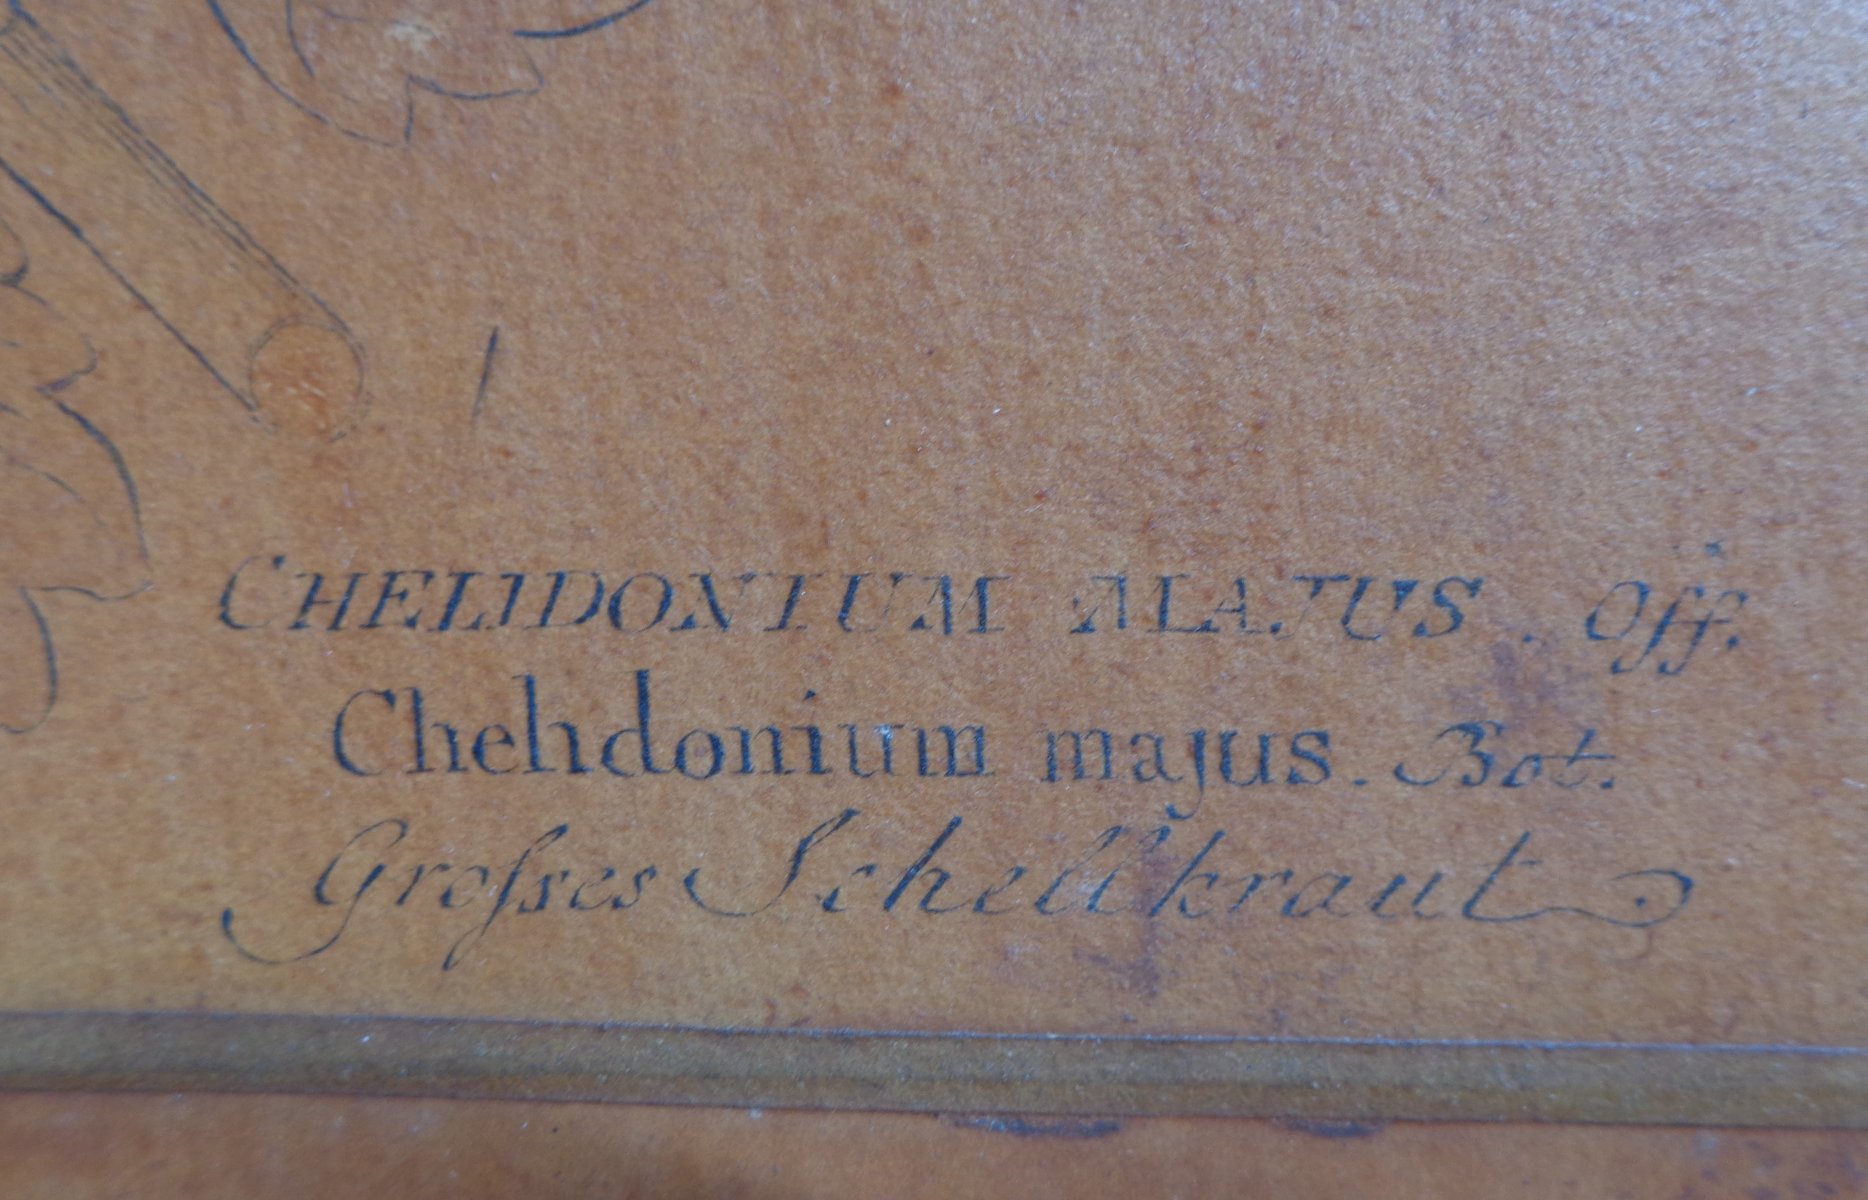 CHELIDONIUM MAJUS. Off.
Chelidonium majus. Bot.
Groſses Schellkraut